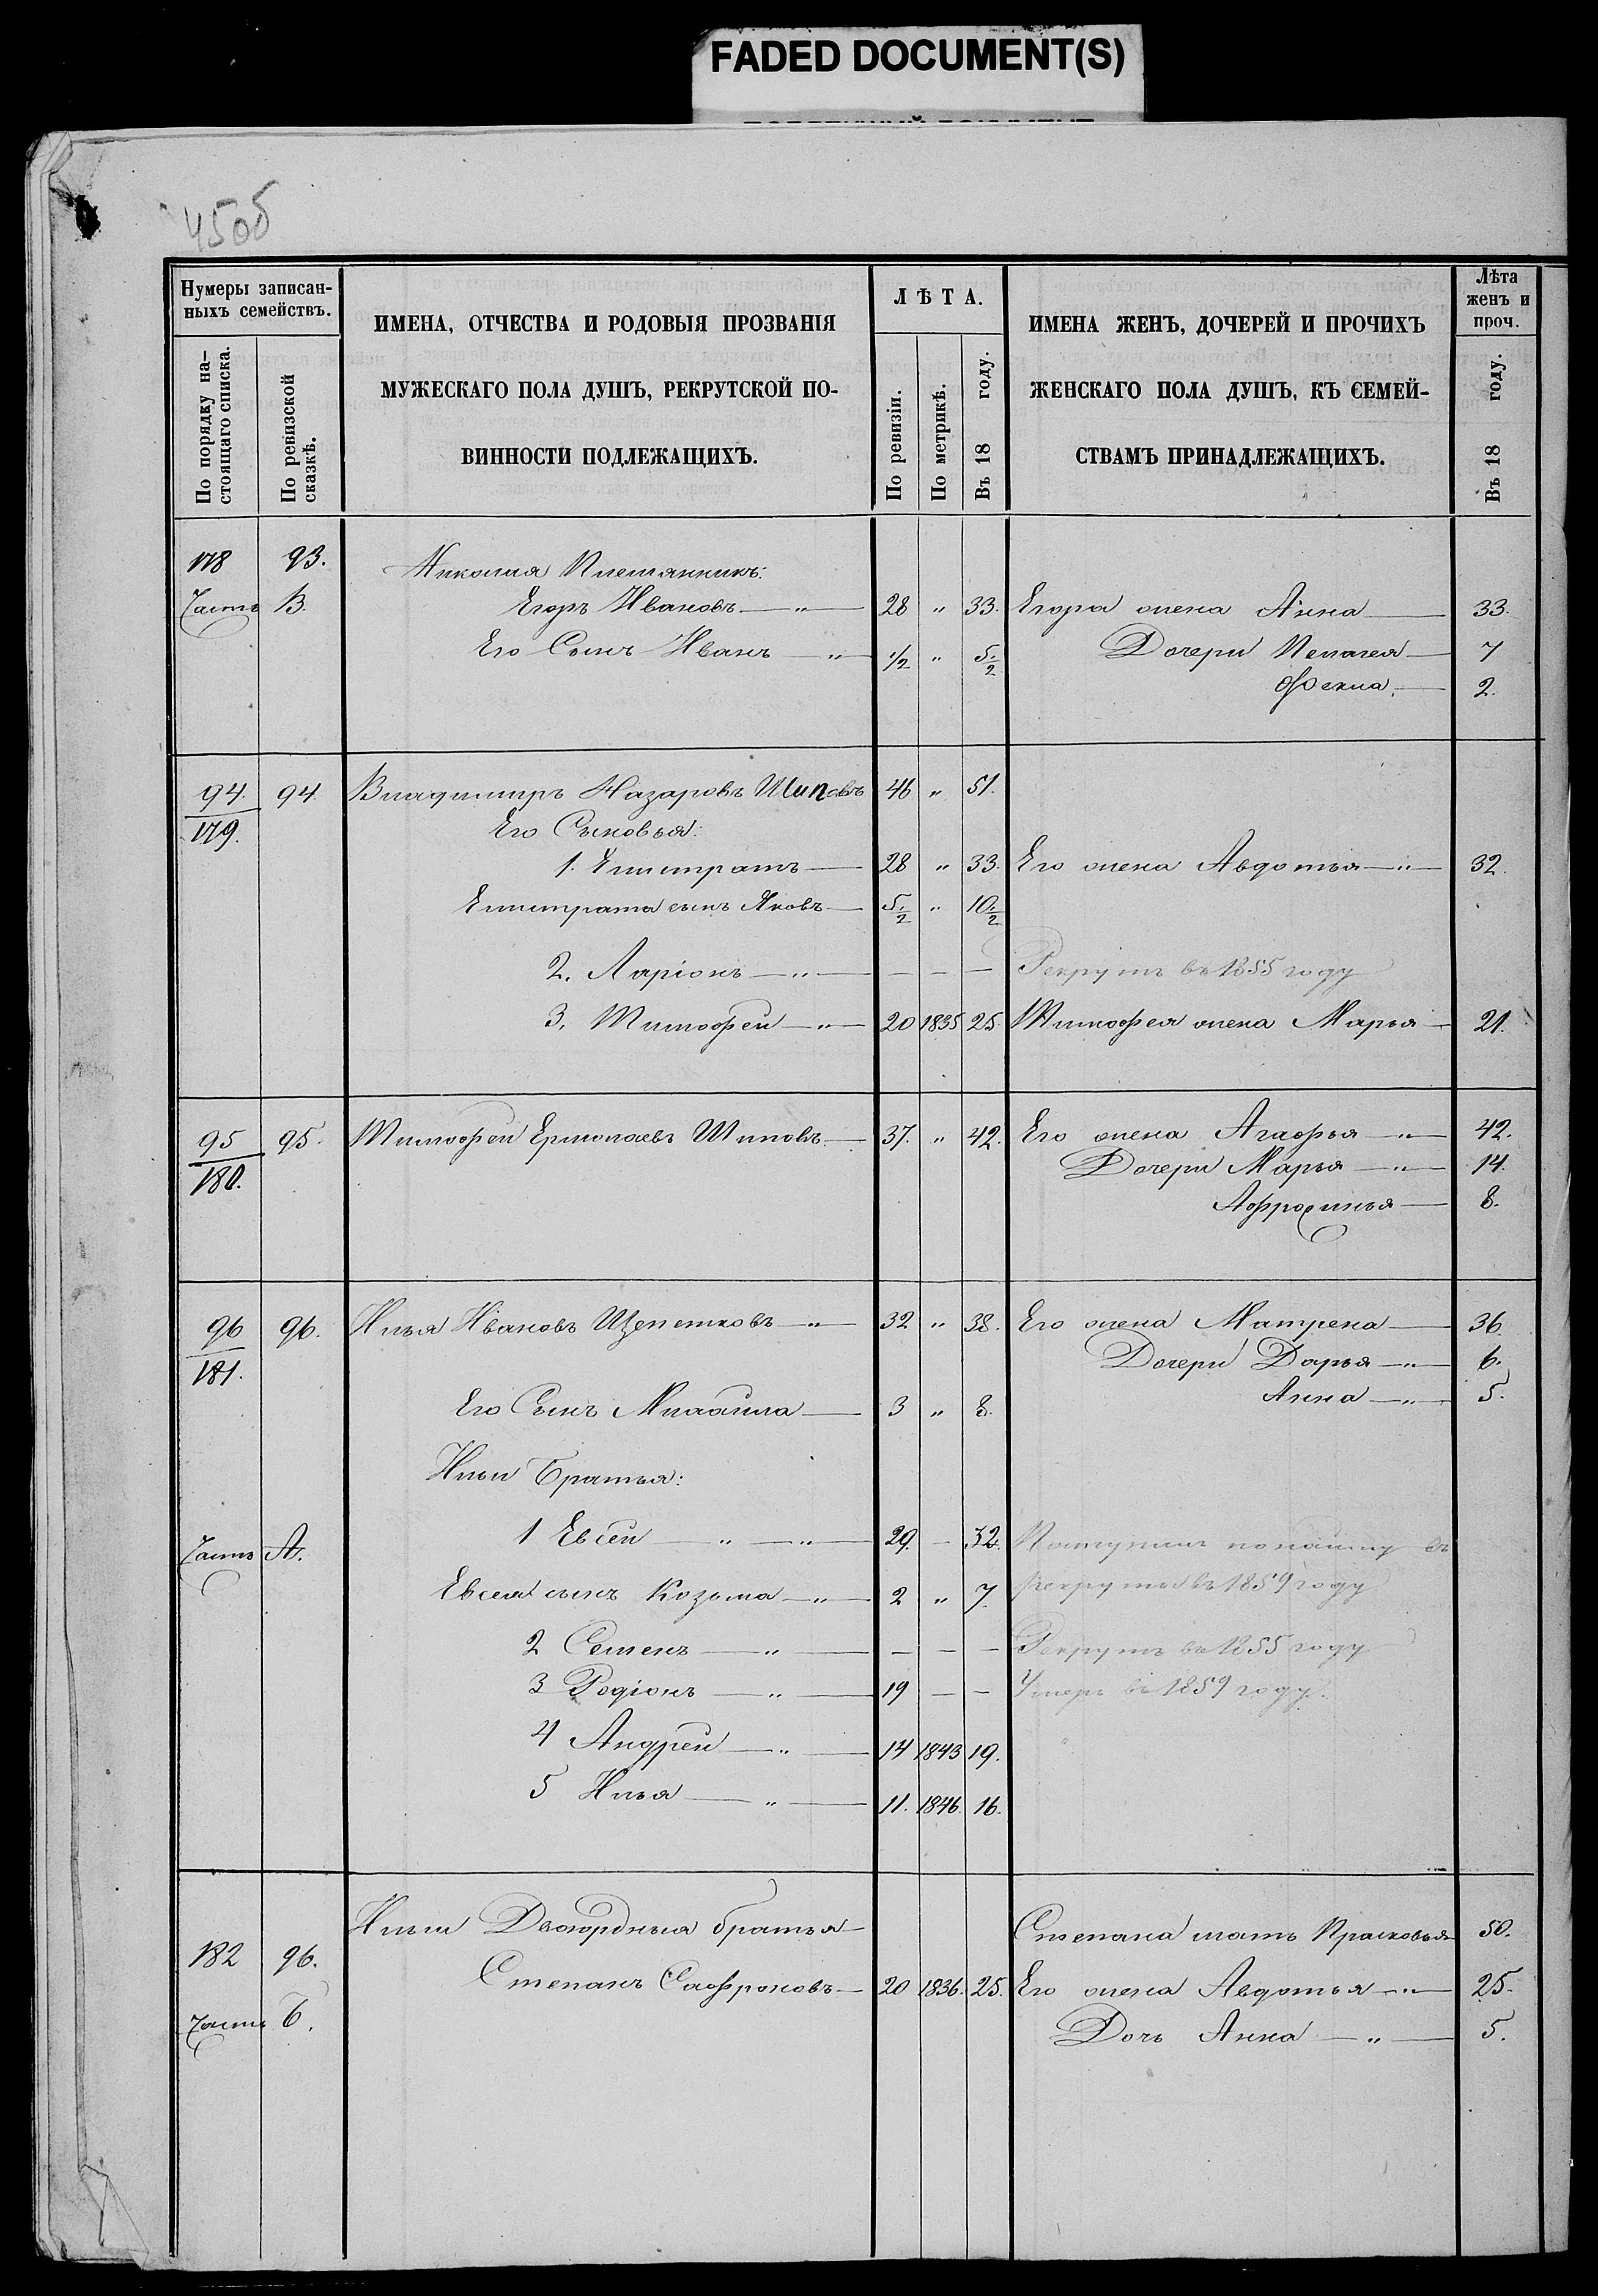 FADED DOCUMENT(S)
450б
Нумеры записан-
ныхъ семействъ.
По порядку на-
стоящаго списка.
По ревизской
сказкѣ.
ИМЕНА, ОТЧЕСТВА И РОДОВЫЯ ПРОЗВАНІЯ
МУЖЕСКАГО ПОЛА ДУШЪ, РЕКРУТСКОЙ ПО-
ВИННОСТИ ПОДЛЕЖАЩИХЪ.
ЛѢТА.
По ревизіи.
По метрикѣ.
Въ 18 году.
ИМЕНА ЖЕНЪ, ДОЧЕРЕЙ И ПРОЧИХЪ
ЖЕНСКАГО ПОЛА ДУШЪ, КЪ СЕМЕЙ-
СТВАМЪ ПРИНАДЛЕЖАЩИХЪ.
Лѣта
женъ и
проч.
Въ 18 году.
178 93. Николая Племянникъ:
Часть В. Егоръ Ивановъ — „ — 28 „ 33. Егора жена Анна — 33.
Его Сынъ Иванъ — „ 1/2 „ 5 1/2 Дочери Пелагея — 7
Фекла, — 2.
94. 94. Владимиръ Назаровъ Шиповъ 46 „ 51.
179. Его Сыновья:
1. Елистратъ — 28 „ 33. Его жена Авдотья — „ — 32.
Елистрата сынъ Яковъ — 5 1/2 „ 10 1/2
2. Ларіонъ — „ — — — — Рекрутъ въ 1855 году
3. Тимофей — „ — 20 1835 25. Тимофея жена Марья — 21.
95 95. Тимофей Ермолаевъ Шиповъ — 37. „ 42. Его жена Агафья — „ — 42.
180. Дочери Марья — „ — 14.
Афросинья — 8.
96 96. Илья Ивановъ Щепетковъ — „ — 32 „ 38. Его жена Матрена — 36.
181. Дочери Дарья — „ — 6.
Анна — „ — 5.
Его Сынъ Михайла — 3 „ 8.
Ильи Братья:
Часть А. 1 Евсей — „ — „ — 29. — 32. Поступилъ по найму въ
Евсея сынъ Козьма — „ — 2 „ 7. рекруты въ 1859 году
2 Семенъ — „ — — — — Рекрутъ въ 1855 году
3 Родіонъ — „ — 19 — — Умеръ въ 1859 году.
4 Андрей — „ — 14 1843 19.
5 Илья — „ — 11. 1846 16.
Ильи Двоюродныя братья — Степана мать Прасковья 50.
182 96. Степанъ Сафроновъ — 20 1836. 25. Его жена Авдотья — „ — 25.
Часть Б. Дочь Анна — „ — 5.